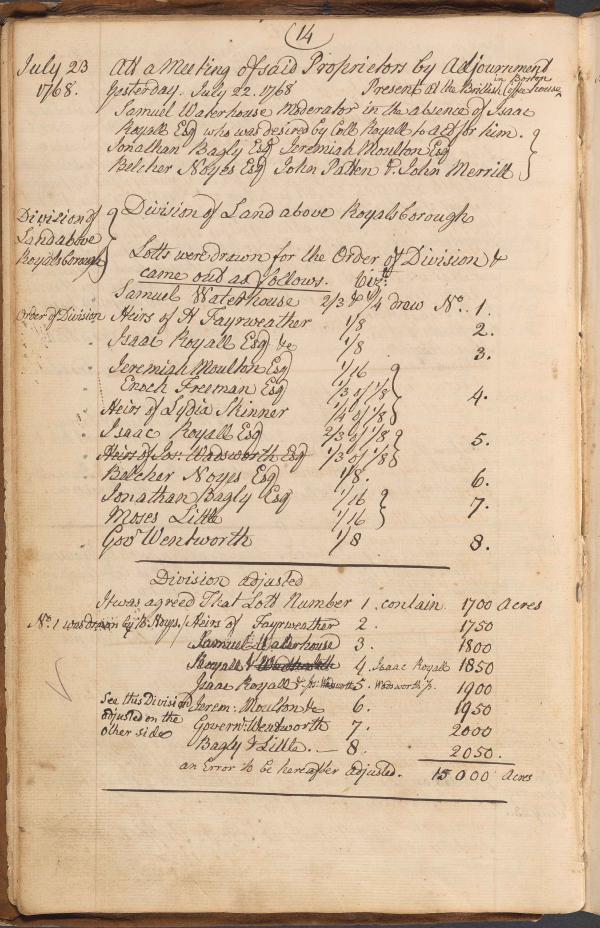 14
July 23 1768.
At a Meeting of said Proprietors by Adjournment
Yesterday. July 22. 1768 Present at the British Coffee house in Boston
Samuel Waterhouse Moderator in the absence of Isaac
Royall Esq who was desired by Coll Royall to act for him.
Jonathan Bagly Esq Jeremiah Moulton Esq
Belcher Noyes Esq John Patten & John Merrill
Division of Land above Royalsborough
Division of Land above Royalsborough
Lotts were drawn for the Order of Division &
came out as follows. Vizt:
Samuel Waterhouse 2/3 & 1/4 drew No. 1.
Order of Division Heirs of H Fayrweather 1/8 2.
Isaac Royall Esq &c 1/8 3.
Jeremiah Moulton Esq 1/16
Enoch Freeman Esq 1/3 of 1/8 4.
Heirs of Lydia Skinner 1/4 of 1/8
Isaac Royall Esq 2/3 of 1/8 5.
Heirs of Jos: Wadsworth Esq 1/3 of 1/8
Belcher Noyes Esq 1/8. 6.
Jonathan Bagly Esq 1/16 7.
Moses Little 1/16
Govr Wentworth 1/8 8.
Division adjusted
It was agreed That Lott Number 1. contain 1700 Acres
No. 1 was drawn by B. Noyes, Heirs of Fayrweather 2. 1750
Samuel Waterhouse 3. 1800
Royall & Wadsworth 4. Isaac Royall 1850
Isaac Royall & Jos: Wadsworth 5. Wadsworth 1900
See this Division adjusted on the other side
Jerem: Moulton &c 6. 1950
Governr: Wentworth 7. 2000
Bagly & Little. — 8. 2050.
an Error to be hereafter adjusted. 15000 Acres